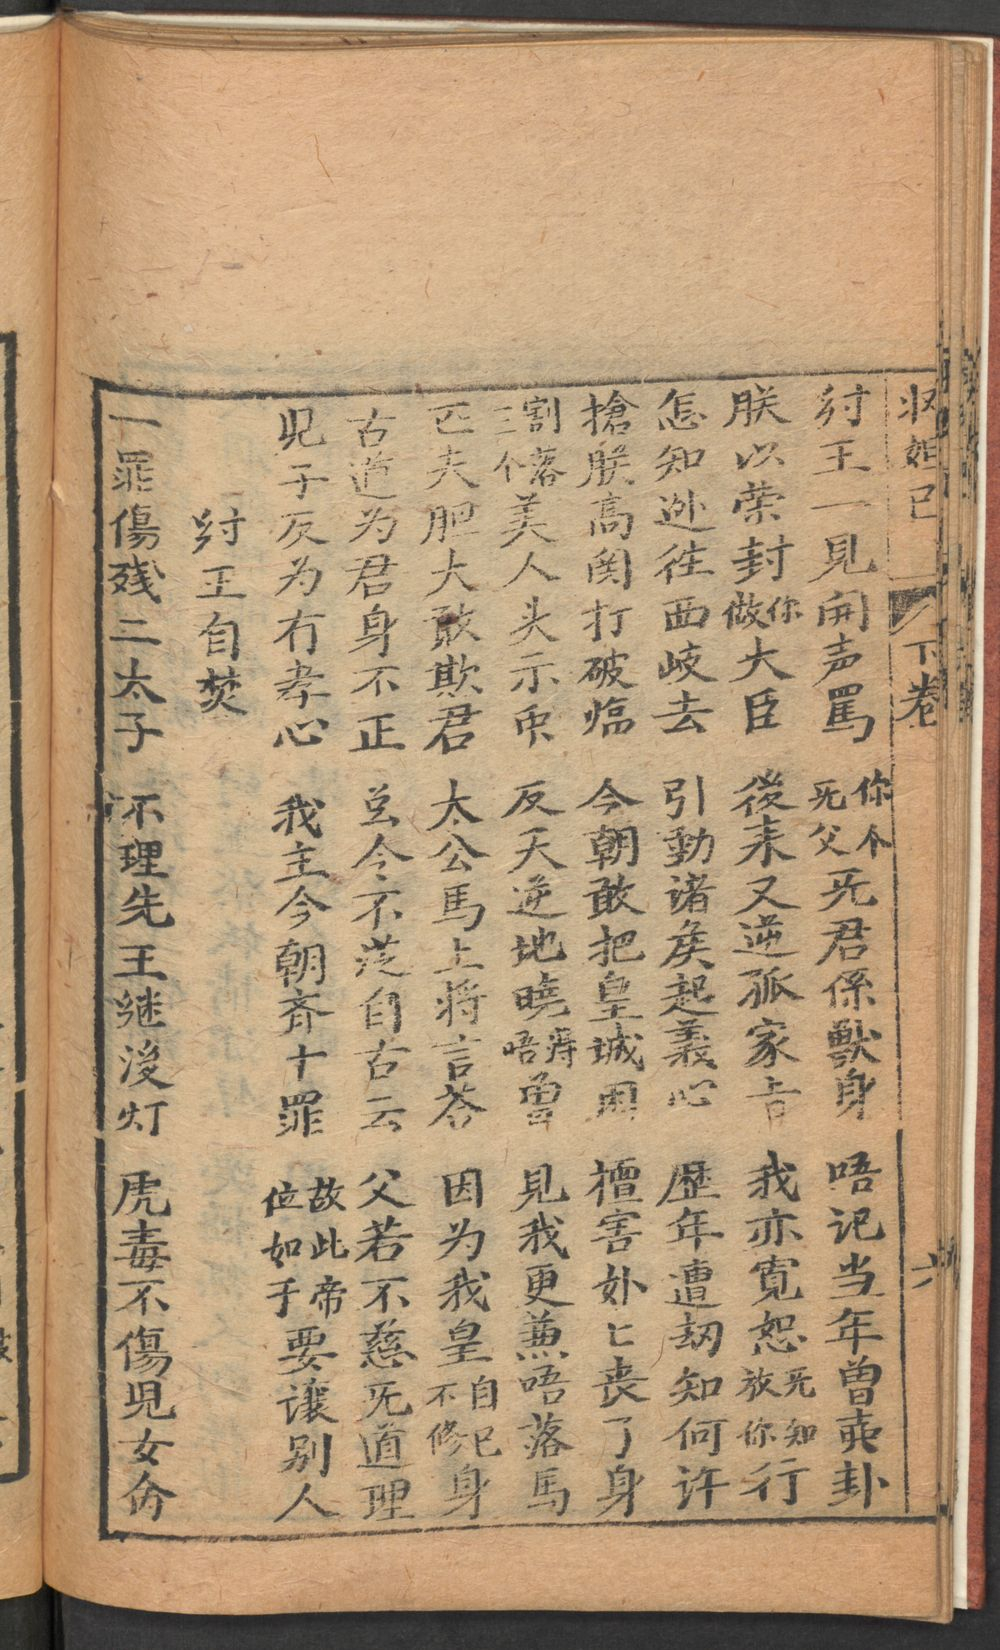 收妲己 下卷 六
紂王一見開声罵 你个死父死君係獸身 唔记当年曾卖卦
朕以荣封你做大臣 後来又逆孤家旨 我亦寛恕死知放你行
怎知逊徃西岐去 引動诸矦起義心 歴年遭刼知何许
搶朕高関打破临 今朝敢把皇城困 擅害妣匕丧了身
割落三个美人头示衆 反天逆地曉得唔曽 見我更兼唔落馬
匹夫胆大敢欺君 太公馬上将言荅 因为我皇自己不修身
古道为君身不正 豈今不茫自古云 父若不慈死道理
児子反为冇孝心 我主今朝齐十罪 故此帝位如于要讓别人
紂王自焚
一罪傷残二太子 不理先王継後灯 虎毒不傷児女分